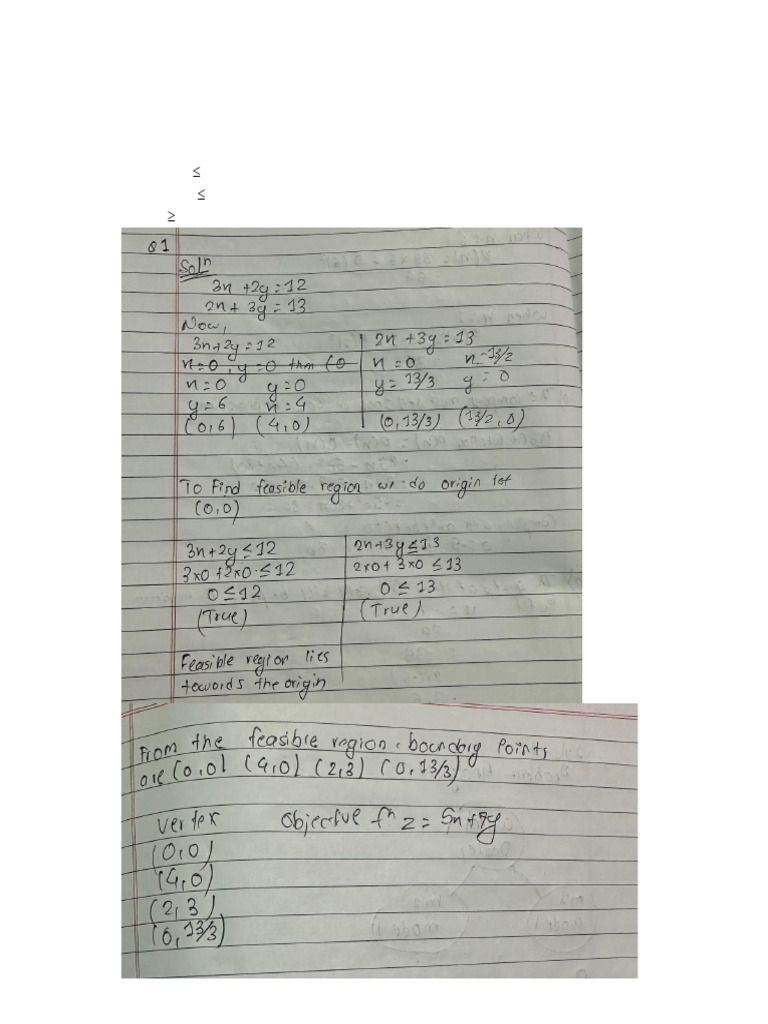 ≤
≤
≥
Q1
Solⁿ
3n + 2y = 12
2n + 3y = 13
Now,
3n + 2y = 12
n = 0, y = 0 then (0
n = 0 y = 0
y = 6 n = 4
(0,6) (4,0)
2n + 3y = 13
n = 0 n = 13/2
y = 13/3 y = 0
(0, 13/3) (13/2, 0)
To Find feasible region we do origin tet
(0,0)
3n + 2y ≤ 12
3×0 + 2×0 ≤ 12
0 ≤ 12
(True)
Feasible region lies
towords the origin
2n + 3y ≤ 13
2×0 + 3×0 ≤ 13
0 ≤ 13
(True)
From the feasible region, boundry points
are (0,0) (4,0) (2,3) (0, 13/3)
Vertex Objective fⁿ z = 5n + 7y
(0,0)
(4,0)
(2,3)
(0, 13/3)